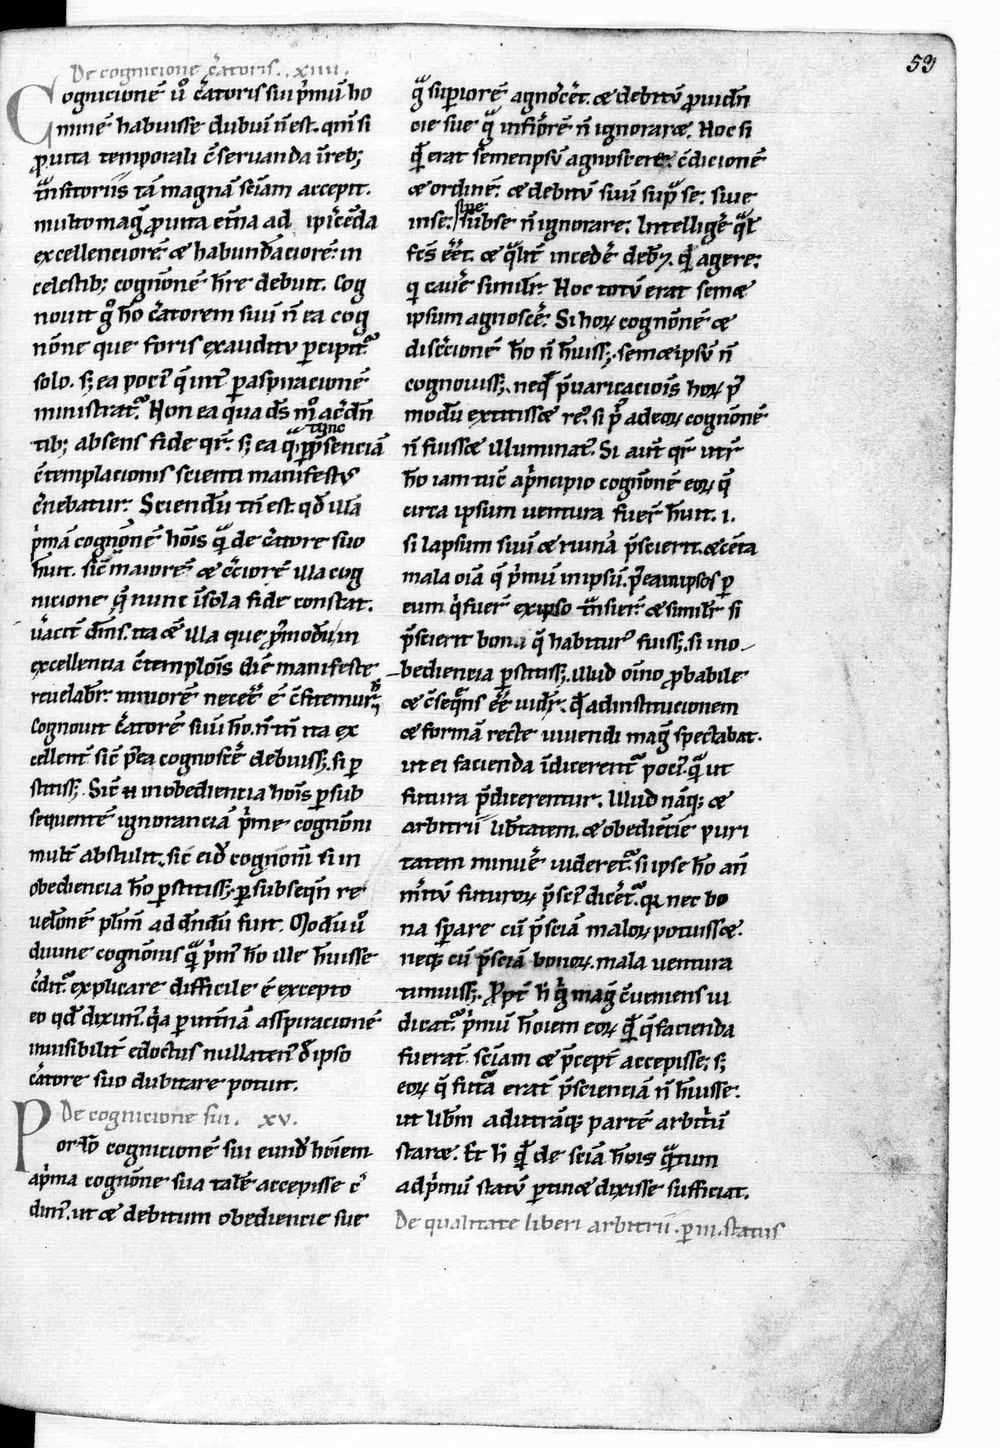 59
De cognicione c̄atoris. .xiiii.
Cognicionē u̾ c̄atoris sui p̾mū ho
minē habuisse dubiū n̄ est. qm̄ si
ꝓ uita temporali ꝯseruanda ī reb;
t̄nsitoriis tā magnā sciam accepit.
multo mag̾ ꝓ uita et̄na ad ipicēda
excellenciorē ⁊ habundāciorē in
celestib; cognōnē hr̄e debuit. Cog
nouit g̊ hō c̄atorem suū n̄ ea cog
nōne que foris ex auditu ꝑcipit᷑
solo. s; ea poci᷒ q̄ int᷒ ꝑ aspiracionē
ministrat᷑. Non ea qua ds̄ m̊ a c̄dn̄
tib; absens fide qr̄. s; ea q̄ tunc ꝑ p̄senciā
ꝯtemplacionis scienti manifestus
c̄nebatur. Sciendū tn̄ est. qd̄ illā
p̾mā cognōnē hōis q̄ de c̄atore suo
huit. sic̄ maiorē ⁊ c̄ciorē illa cog
nicione q̄ nunc ī sola fide constat.
uacit̄ dīm̄s. ita ⁊ illa que p̾modū in
excellentia ꝯtemplōis diē manifeste
reuelabr̄. minorē necē ē ꝯfitemur.
Cognouit c̄atorē suū hō. n̄ tn̄ ita ex
cellent̄ sic̄ p̾ea cognoscē debuiss; si ꝑ
stitiss;. Sic̄ .n. inobediencia hōis ꝑ sub
sequentē ignoranciā p̾me cognōni
mult̄ abstulit. sic̄ eid̄ cognōni si in
obediencia hō ꝑstitiss; ꝑ subseqn̄ re
uel̄onē pl̄im̄ ad dn̄dū fuit. Modū u̾
diuine cognōnis q̄ p̾m᷒ hō ille huisse
c̄dit᷑ explicare difficile ē excepto
eo qd̄ dixim᷒. q̾a ꝑ int̄nā asspiracionē
inuisibilit̄ edoctus nullaten᷒ d̾ ipso
c̄atore suo dubitare potuit.
De cognicione sui. xv.
Porro cognicionē sui eund̄ hōiem
a p̾ma cognōne sua talē accepisse c̄
dim᷒. ut ⁊ debitum obediencie sue
q̄ superiorē agnosc̄et. ⁊ debitū ꝓuidn̄
cie sue q̄ inferiorē n̄ ignoraret. Hoc si
q̄d̄ erat semetipsū agnoscere ꝯdicionē
⁊ ordinē ⁊ debitū suū sup̾ se: siue
in se: siue sub se n̄ ignorare; Intelligē q̄l̄
fcs̄ ēēt. ⁊ q̄lit̄ incedē deb;. q̾d̾ agere;
q̾ cauē simili᷒. Hoc totū erat semet
ipsum agnoscē. Si hoꝝ cognōnē ⁊
discēcionē hō n̄ huiss;. semetipsū n̄
cognouiss;. neq̾ p̄uaricaciōis hoꝝ p̾
modū extitisset re᷒ si p̾ adeoꝝ cognōnē
n̄ fuisset illuminat᷒. Si aut̄ qr̄ utr̄
hō iam tūc a p̾ncipio cognōnē eoꝝ q̄
circa ipsum uentura fuer̄ huit. i.
si lapsum suū ⁊ ruinā p̄scierit. ⁊ cet̄a
mala oīa q̄ p̾mū in ipsū. postea in ipsos ꝑ
eum q̾ fuer̄ ex ipso t̄nsier̄ ⁊ simili᷒ si
p̄scierit bona q̄ habitur᷒ fuiss; si in o
bediencia ꝑstitiss;. illud oīno ꝓbabile
⁊ ꝯseq̄ns ēē uidr̄. q̄d̄ ad institucionem
⁊ formā recte uiuendi mag̾ spectabat.
ut ei facienda ī dicerent᷑ poci᷒ q̄ ut
futura p̄dicerentur. Illud nāq; ⁊
arbitrii lib̄tatem. ⁊ obediēcie puri
tatem minuē uideret᷑ si ipse hō an̄
m̄itū futuroꝝ p̄sci᷒ dicēt᷑. qꝛ nec bo
na sperare cū p̄sciā maloꝝ potuisset.
neq; cū p̄sciā bonoꝝ. mala uentura
timuiss;. Propt̄ h̾ g̾ mag̾ ꝯueniens ui
deat᷑. p̾mū hōiem eoꝝ q̄d̄ q̄ facienda
fuerāt. sciam ⁊ p̄cept̄ accepisse; s;
eoꝝ q̄ futā erāt p̄scienciā n̄ huisse.
ut lib̄m ad utrāq; partē arbit̾ū
staret. Et h̾ q̄d̄ de sciā hōis q̄ntum
ad p̾mū statū ꝑtinet dixisse sufficiat.
De qualitate liberi arbitrii. ꝑ .iii. status